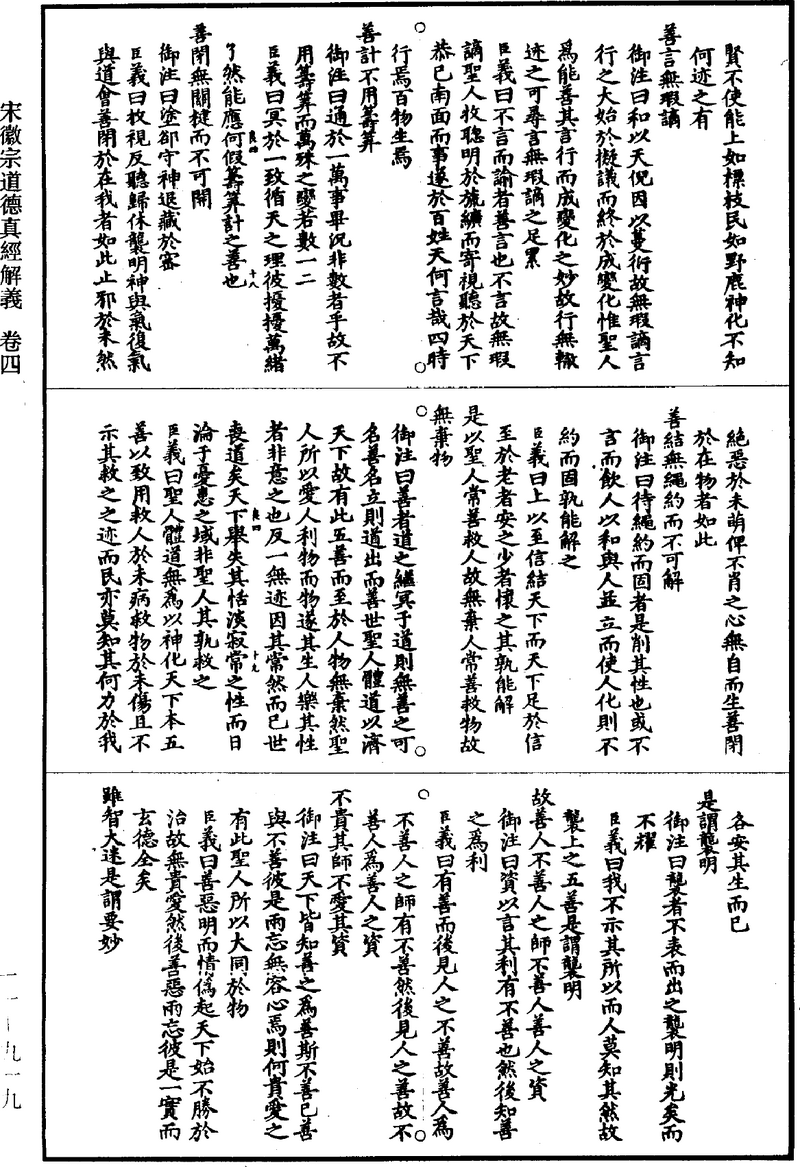 賢不使能上如標枝民如野鹿神化不知
何迹之有
善言無瑕謫
御注曰和以天倪因以蔓衍故無瑕謫言
行之大始於擬議而終於成變化惟聖人
為能善其言行而成變化之妙故行無轍
迹之可尋言無瑕謫之足累
臣義曰不言而諭者善言也不言故無瑕
謫聖人收聰明於旒纊而寄視聽於天下
恭己南面而事遂於百姓天何言哉四時
行焉百物生焉
善計不用籌筭
御注曰通於一萬事畢況非數者乎故不
用籌筭而萬殊之變若數一二
臣義曰冥於一致循天之理彼擾擾萬緒
了然能應何假籌筭計之善也
善閉無關楗而不可開
御注曰塗郤守神退藏於密
臣義曰收視反聽歸休襲明神與氣復氣
與道會善閉於在我者如此止邪於未然
絕惡於未萌俾不肖之心無自而生善閉
於在物者如此
善結無繩約而不可解
御注曰待繩約而固者是削其性也或不
言而飲人以和與人並立而使人化則不
約而固孰能解之
臣義曰上以至信結天下而天下足於信
至於老者安之少者懷之其孰能解
是以聖人常善救人故無棄人常善救物故
無棄物
御注曰善者道之繼冥于道則無善之可
名善名立則道出而善世聖人體道以濟
天下故有此五善而至於人物無棄然聖
人所以愛人利物而物遂其生人樂其性
者非意之也反一無迹因其常然而已世
喪道矣天下舉失其恬淡寂常之性而日
淪于憂患之域非聖人其孰救之
臣義曰聖人體道無為以神化天下本五
善以致用救人於未病救物於未傷且不
示其救之之迹而民亦莫知其何力於我
各安其生而已
是謂襲明
御注曰襲者不表而出之襲明則光矣而
不耀
臣義曰我不示其所以而人莫知其然故
襲上之五善是謂襲明
故善人不善人之師不善人善人之資
御注曰資以言其利有不善也然後知善
之為利
臣義曰有善而後見人之不善故善人為
不善人之師有不善然後見人之善故不
善人為善人之資
不貴其師不愛其資
御注曰天下皆知善之為善斯不善已善
與不善彼是兩忘無容心焉則何貴愛之
有此聖人所以大同於物
臣義曰善惡明而情偽起天下始不勝於
治故無貴愛然後善惡兩忘彼是一實而
玄德全矣
雖智大迷是謂要妙
宋徽宗道德真經解義 卷四
一一—九一九